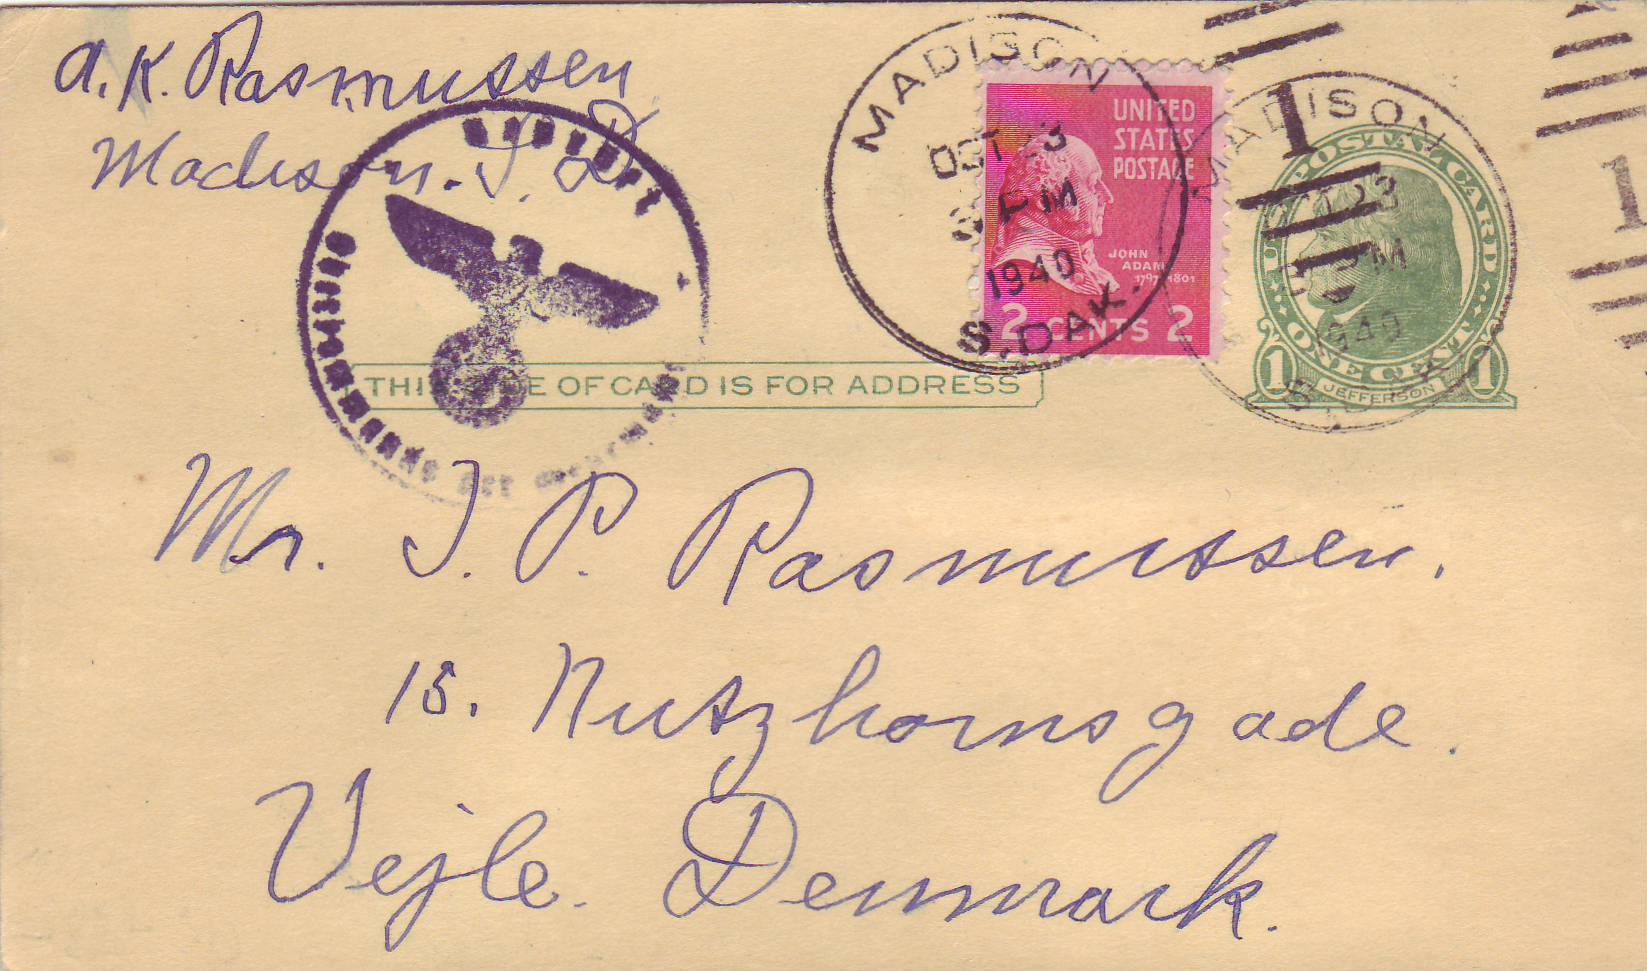 A. K. Rasmussen
Madison. S. D.
Geöffnet
Oberkommando der Wehrmacht
MADISON
OCT 23
PM
1940
S. DAK.
UNITED
STATES
POSTAGE
JOHN
ADAMS
1797-1801
2 CENTS 2
MADISON
OCT 23
PM
1940
S. DAK.
1
1
U.S. POSTAL CARD
ONE CENT
1 JEFFERSON 1
THIS SIDE OF CARD IS FOR ADDRESS
Mr. J. P. Rasmussen.
15. Nutzhornsgade.
Vejle. Denmark.